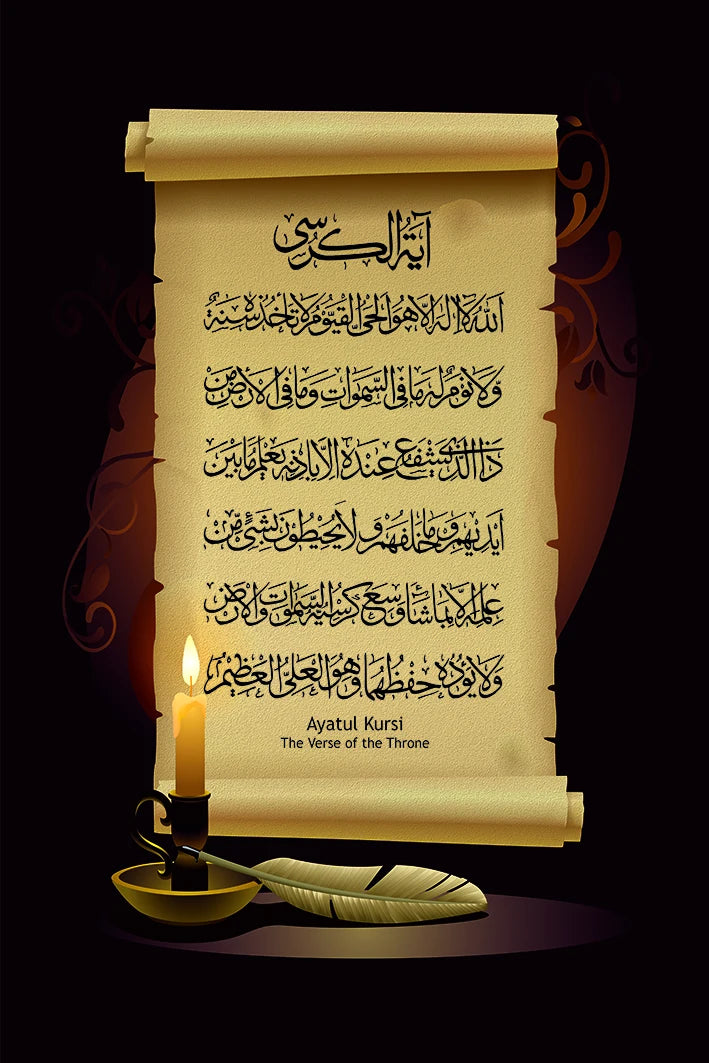 آية الكرسي
اَللهُ لَا اِلٰهَ اِلَّا هُوَ الْحَيُّ الْقَيُّوْمُ لَا تَأْخُذُهُ سِنَةٌ
وَّلَا نَوْمٌ لَهُ مَا فِي السَّمٰوَاتِ وَمَا فِي الْاَرْضِ مَنْ
ذَا الَّذِيْ يَشْفَعُ عِنْدَهُ اِلَّا بِاِذْنِهِ يَعْلَمُ مَا بَيْنَ
اَيْدِيْهِمْ وَمَا خَلْفَهُمْ وَلَا يُحِيْطُوْنَ بِشَيْءٍ مِّنْ
عِلْمِهِ اِلَّا بِمَا شَاءَ وَسِعَ كُرْسِيُّهُ السَّمٰوَاتِ وَالْاَرْضَ
وَلَا يَؤُدُهُ حِفْظُهُمَا وَهُوَ الْعَلِيُّ الْعَظِيْمُ
Ayatul Kursi
The Verse of the Throne